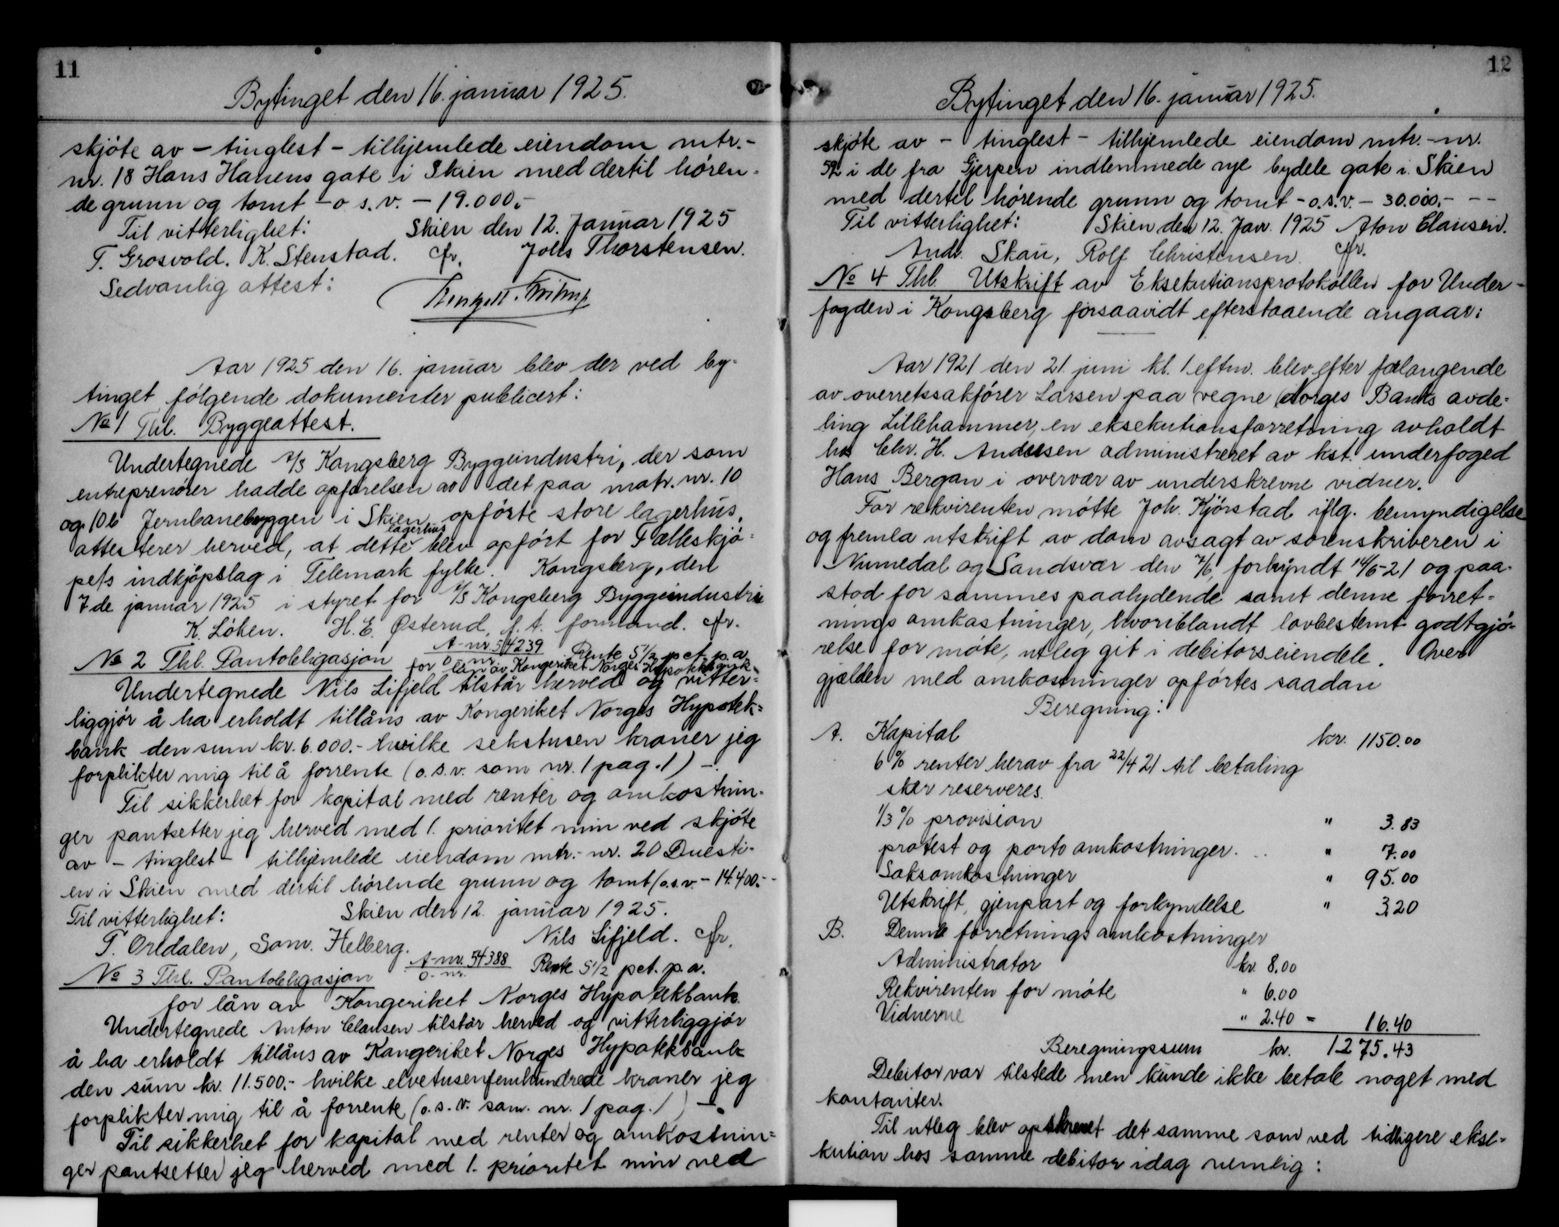 11
Bytinget den 16. januar 1925.
skjöte av - tinglest - tilhjemlede eiendom mtr.-
nr. 18 Hans Hanens gate i Skien med dertil hören-
de grunn og tomt - o s.v. - 19.000.-
Til vitterlighet: Skien den 12. Januar 1925
T. Grosvold. K. Stenstad. cfr. Thorstensen.
Sedvanlig attest:
Aar 1925 den 16. januar blev der ved by-
tinget fölgende dokumenter publicert:
No 1 Thl. Byggeattest.
Undertegnede A/S Kongsberg Byggeindustri, der som
entreprenörer hadde opförelsen av det paa matr. nr. 10
og 10b Jernbanebryggen i Skien opförte store lagerhus,
attesterer herved, at dette lagerhus blev opfört for Fælleskjö-
pets indkjöpslag i Telemark fylke. Kongsberg, den
7de januar 1925 i styret for A/S Kongsberg Byggeindustri
K. Löken. H. E. Østerud, f. t. formand. cfr.
No 2 Thl. Pantobligasjon A-nr. 34239 Rente 5 1/2 pct. p.a.
for lån av Kongeriket Norges Hypotekbank.
Undertegnede Nils Lifjeld tilstår herved og vitter-
liggjör å ha erholdt tillåns av Kongeriket Norges Hypotek-
bank den sum kr. 6.000.- hvilke sekstusen kroner jeg
forplikter mig til å forrente (o.s.v. som nr. 1 pag. 1) -.
Til sikkerhet for kapital med renter og omkostnin-
ger pantsetter jeg herved med 1. prioritet min ved skjöte
av - tinglest - tilhjemlede eiendom mtr.-nr. 20 Duesti-
en i Skien med dertil hörende grunn og tomt (o.s.v. - 14.400.-
Til vitterlighet: Skien den 12. januar 1925.
T. Ordalen, Sam. Helberg. Nils Lifjeld. cfr.
No 3 Thl. Pantobligasjon A-nr. 34388 O-nr. Rente 5 1/2 pct. p.a.
for lån av Kongeriket Norges Hypotekbank
Undertegnede Anton Clausen tilstår herved og vitterliggjör
å ha erholdt tillåns av Kongeriket Norges Hypotekbank
den sum kr. 11.500.- hvilke elvetusenfemhundrede kroner jeg
forplikter mig til å forrente (o.s.v. som nr. 1 pag. 1) -.
Til sikkerhet for kapital med renter og omkostnin-
ger pantsetter jeg herved med 1. prioritet min ved
12
Bytinget den 16. januar 1925.
skjöte av - tinglest - tilhjemlede eiendom mtr.-nr.
59 i de fra Gjerpen indlemmede nye bydele gate i Skien
med dertil hörende grunn og tomt - o.s.v. - 30.000.- --
Til vitterlighet: Skien den 12. Jan. 1925 Anton Clausen.
Andr. Skau, Rolf Christensen. cfr.
No 4 Thl. Utskrift av Eksekutionsprotokollen for Under-
fogden i Kongsberg forsaavidt efterstaaende angaar:
Aar 1921 den 21 juni kl. 1 eftm. blev efter forlangende
av overretssakförer Larsen paa vegne Norges Banks avde-
ling Lillehammer, en eksekutionsforretning avholdt
hos Chr. H. Andersen administreret av kst. underfoged
Hans Bergan i overvær av underskrevne vidner.
For rekvirenten mötte Joh. Kjörstad iflg. bemyndigelse
og fremla utskrift av dom avsagt av sorenskriveren i
Numedal og Sandsvær den 7/6, forkyndt 14/6-21 og paa-
stod for sammes paalydende samt denne forret-
nings omkostninger, hvoriblandt lovbestemt godtgjö-
relse for möte, utleg git i debitors eiendele. Over
gjælden med omkostninger opförtes saadan
Beregning:
A. Kapital kr. 1150.00
6% renter herav fra 22/4 21 til betaling
sker reserveres.
1/3% provision " 3.83
protest og porto omkostninger. .. " 7.00
Saksomkostninger " 95.00
Utskrift, gjenpart og forkyndelse " 3.20
B. Denne forretnings omkostninger
Administrator kr. 8.00
Rekvirenten for möte " 6.00
Vidnerne " 2.40 = 16.40
Beregningssum kr. 1275.43
Debitor var tilstede men kunde ikke betale noget med
kontanter.
Til utleg blev opskrevet det samme som ved tidligere ekse-
kution hos samme debitor idag nemlig: